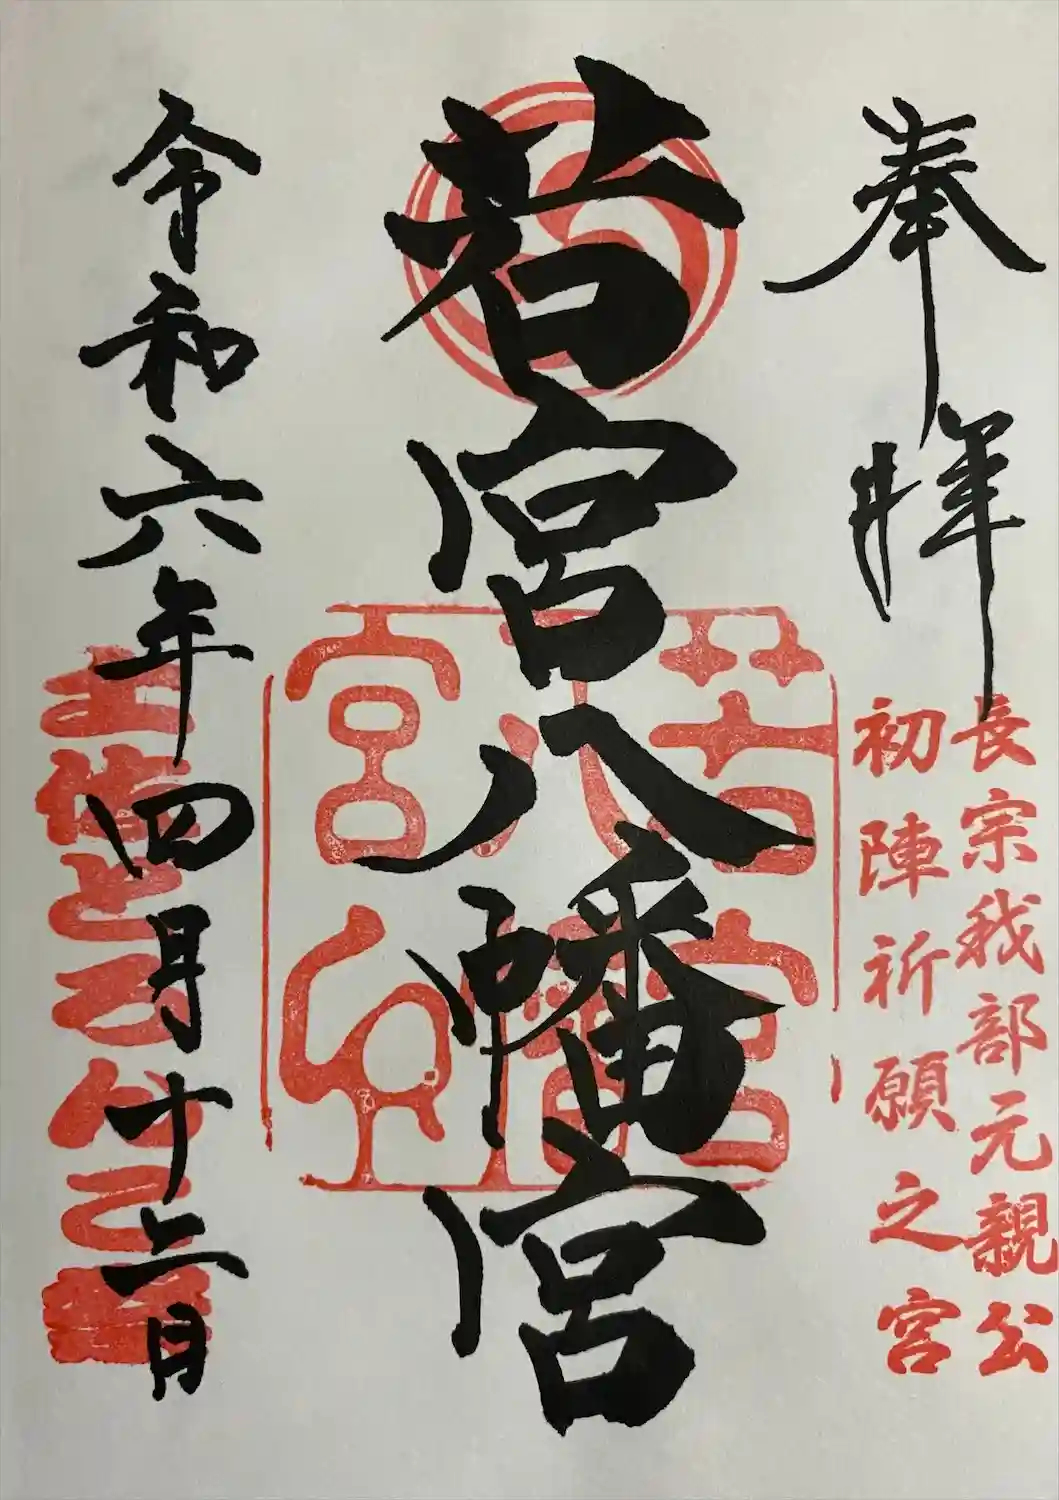 奉拝
長宗我部元親公
初陣祈願之宮
若宮八幡宮
若宮
八幡
宮
令和六年四月十二日